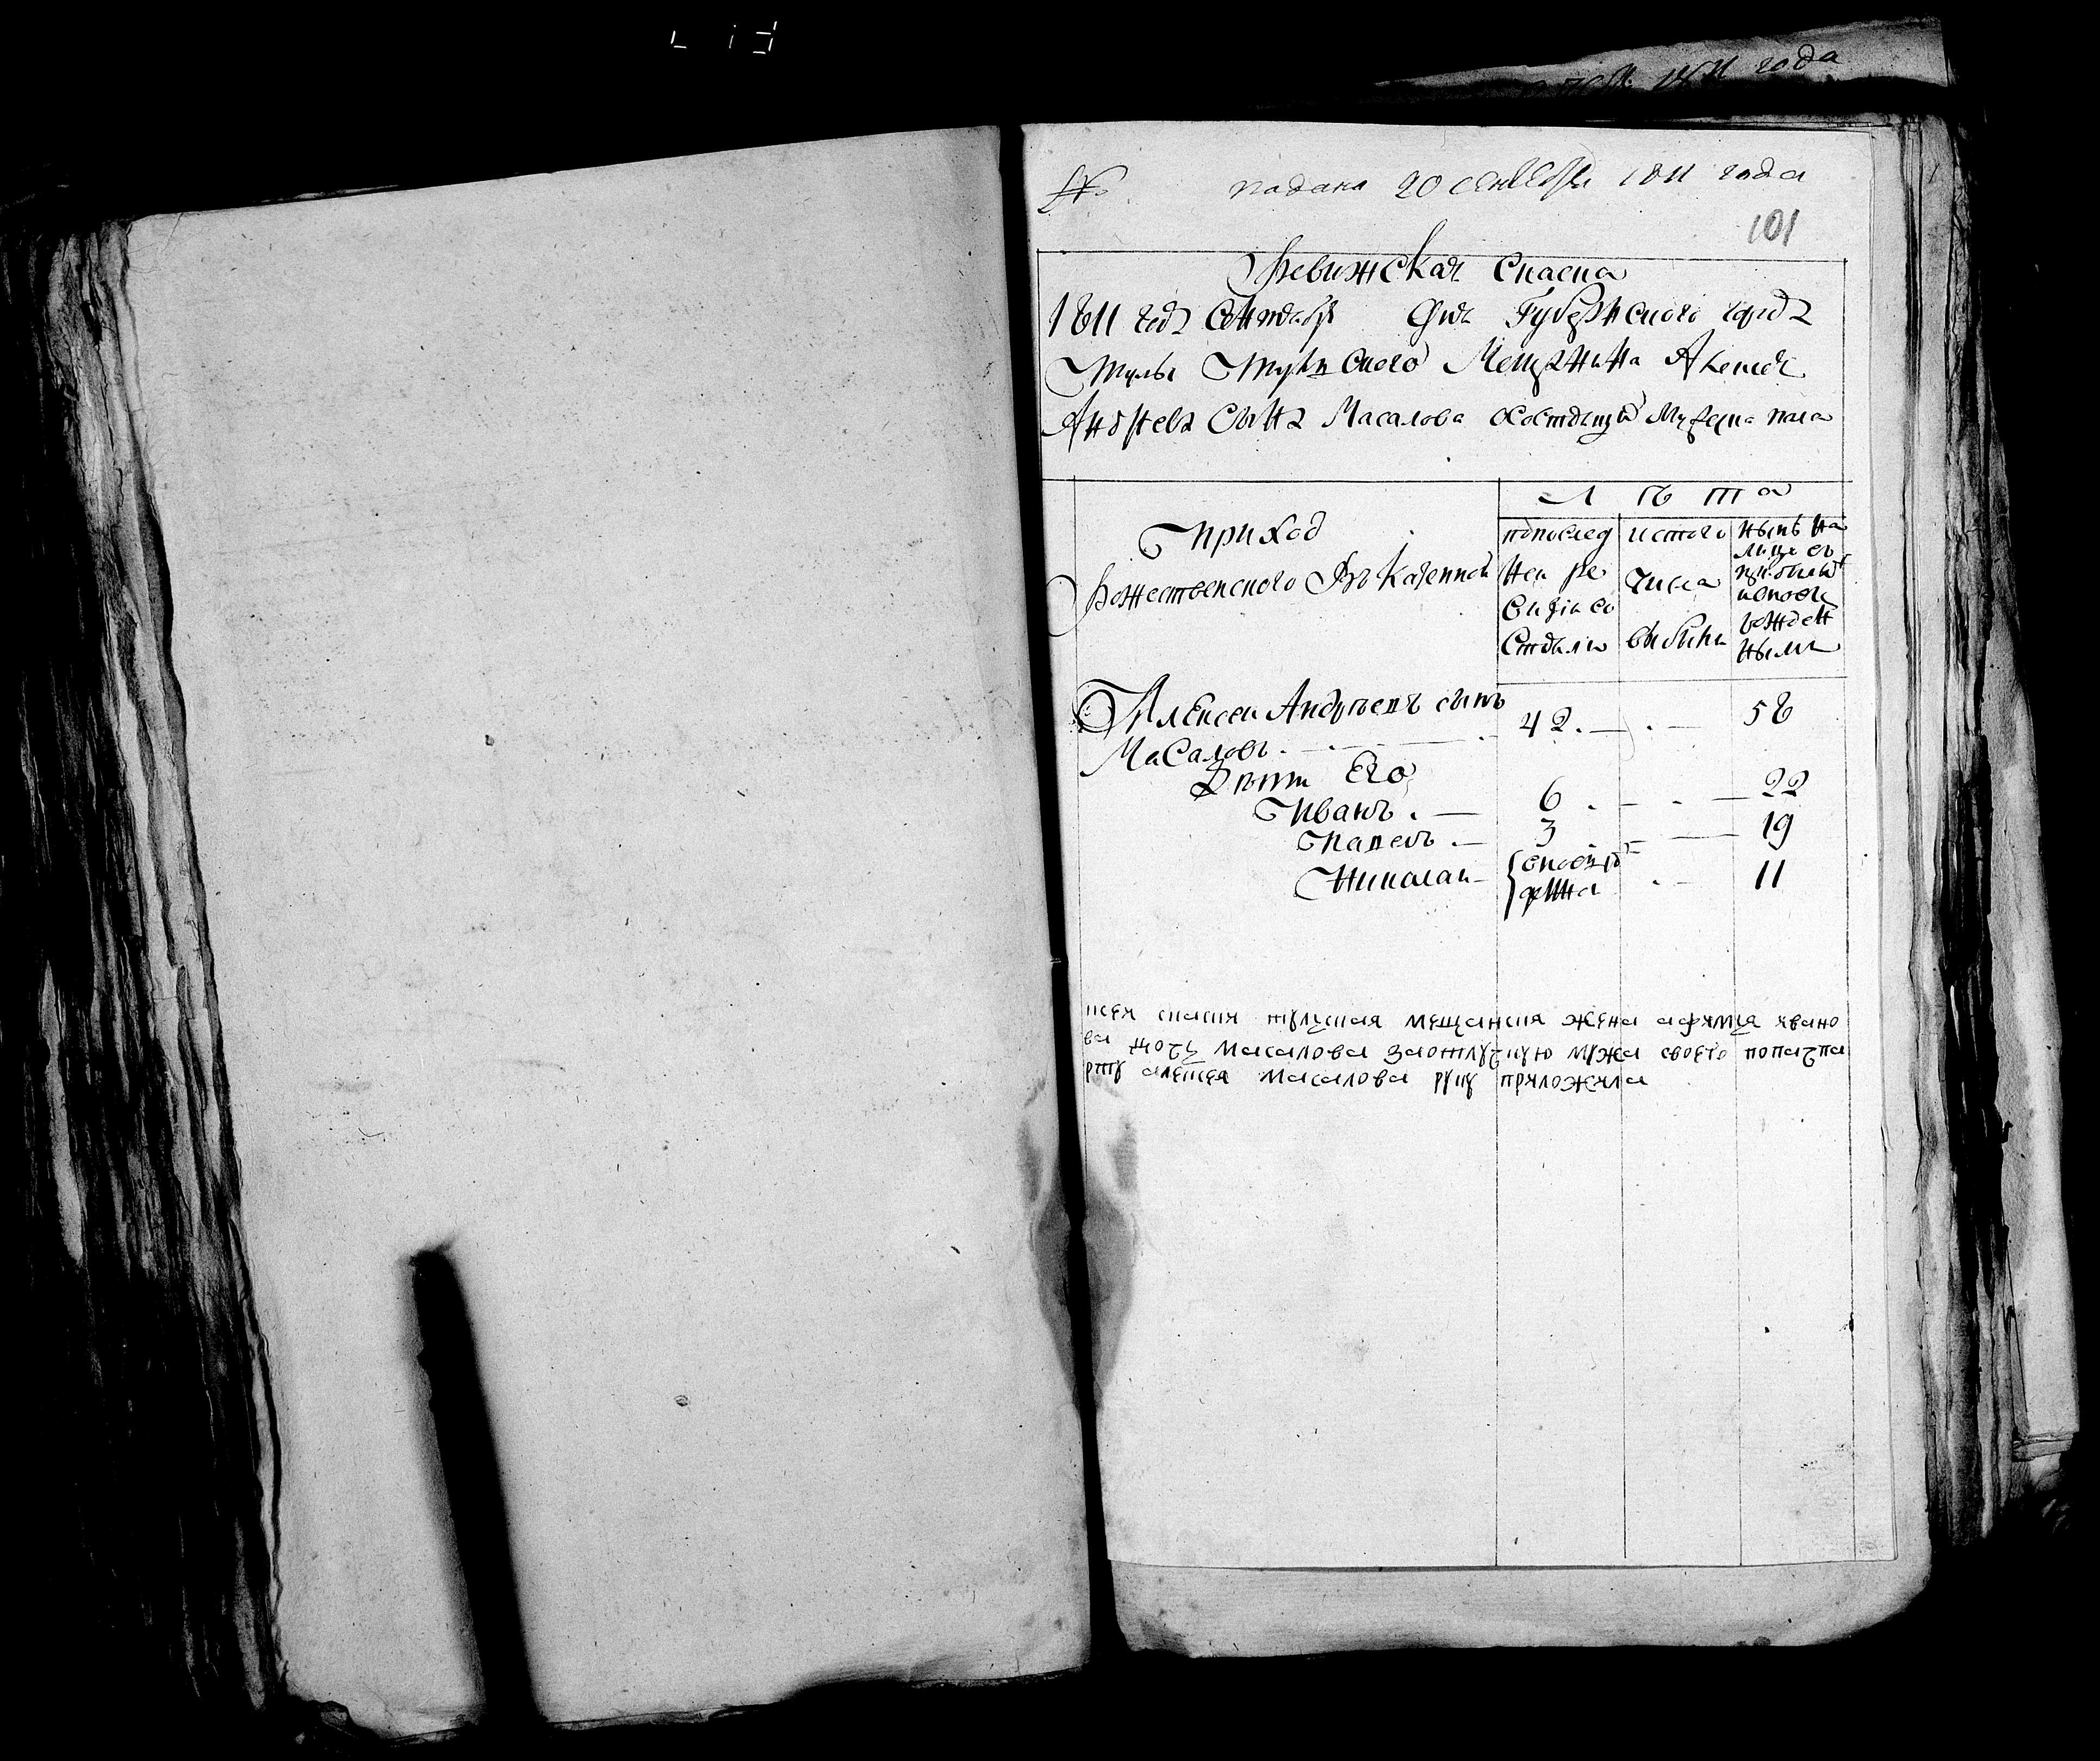 года
№ подана 20 сентебря 1811 года
101
Ревижская скаска
1811 года Сентебря дня Губернского города
Тулы Тулского Мещанина Алексея
Андреева Сына Масалова Состоящия Мужеска пола
Лѣта
Приход
Рожественского Въ Казенной
попослед
ней ре
визiи со
стояли
истого
числа
выбыло
нынѣ на
лицо съ
прибылы
ми и
рожден
ными
Алексей Андреевъ сынъ 42 . — . — 58
Масаловъ . — . —
Дѣти Его
Иванъ . — 6 . — . — 22
Павелъ . — 3 — 19
Николай — послѣ ре . — 11
сей скаски тулская мещанская жена афимiя ивано
ва дочь Масалова заотлучкую мужа своего
алексея масалова руку приложила